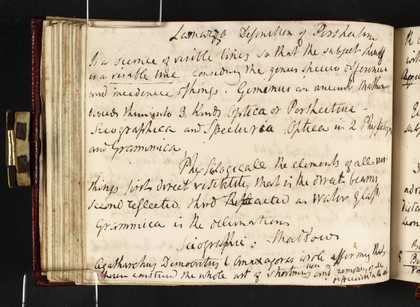 Lomazzo Definition of Perspective
Is a science of visible lines so that the subject thereof
is a visible line. considering the genus species difference
and incidence of things. Geminus an ancient Mathm
divides them into 3 Kinds Optica or Perspective
Sciographica and Specularia Optica in 2 Physiology
and Grammica
Physiologicall the elements of all
things first direct rectitute that is the direct beams
second reflected third Refracted as Water Glass
Grammica is the delineations
Sciographic: Shadows
Agatharchus Democritus & Anaxagoras wrote after
the whole art of shortning and